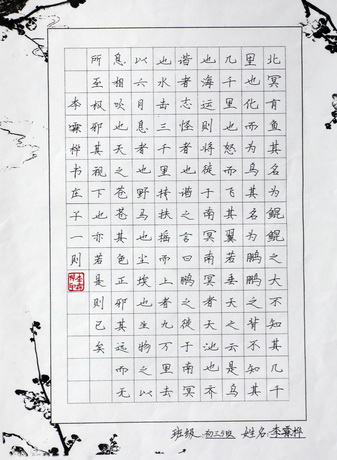 北冥有鱼其名为鲲鲲之大不知其几千
里也化而为鸟其名为鹏鹏之背不知其
几千里也怒而飞其翼若垂天之云是鸟
也海运则将徙于南冥南冥者天池也齐
谐者志怪者也谐之言曰鹏之徙于南冥
也水击三千里抟扶摇而上者九万里去
以六月息者也野马也尘埃也生物之以
息相吹也天之苍苍其正色邪其远而无
所至极邪其视下也亦若是则已矣
李霖桦书庄子一则
班级 初三4班 姓名 李霖桦